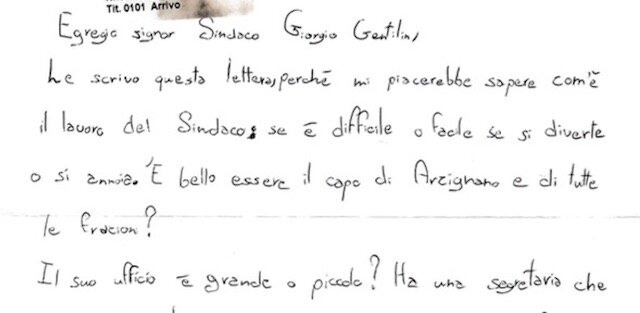 Tit. 0101 Arrivo
Egregio signor Sindaco Giorgio Gentilin,
Le scrivo questa lettera, perchē mi piacerebbe sapere com'ē
il lavoro del Sindaco; se ē difficile o facile se si diverte
o si annoia. 'E bello essere il capo di Arzignano e di tutte
le fracion?
Il suo ufficio ē grande o piccolo? Ha una segretaria che